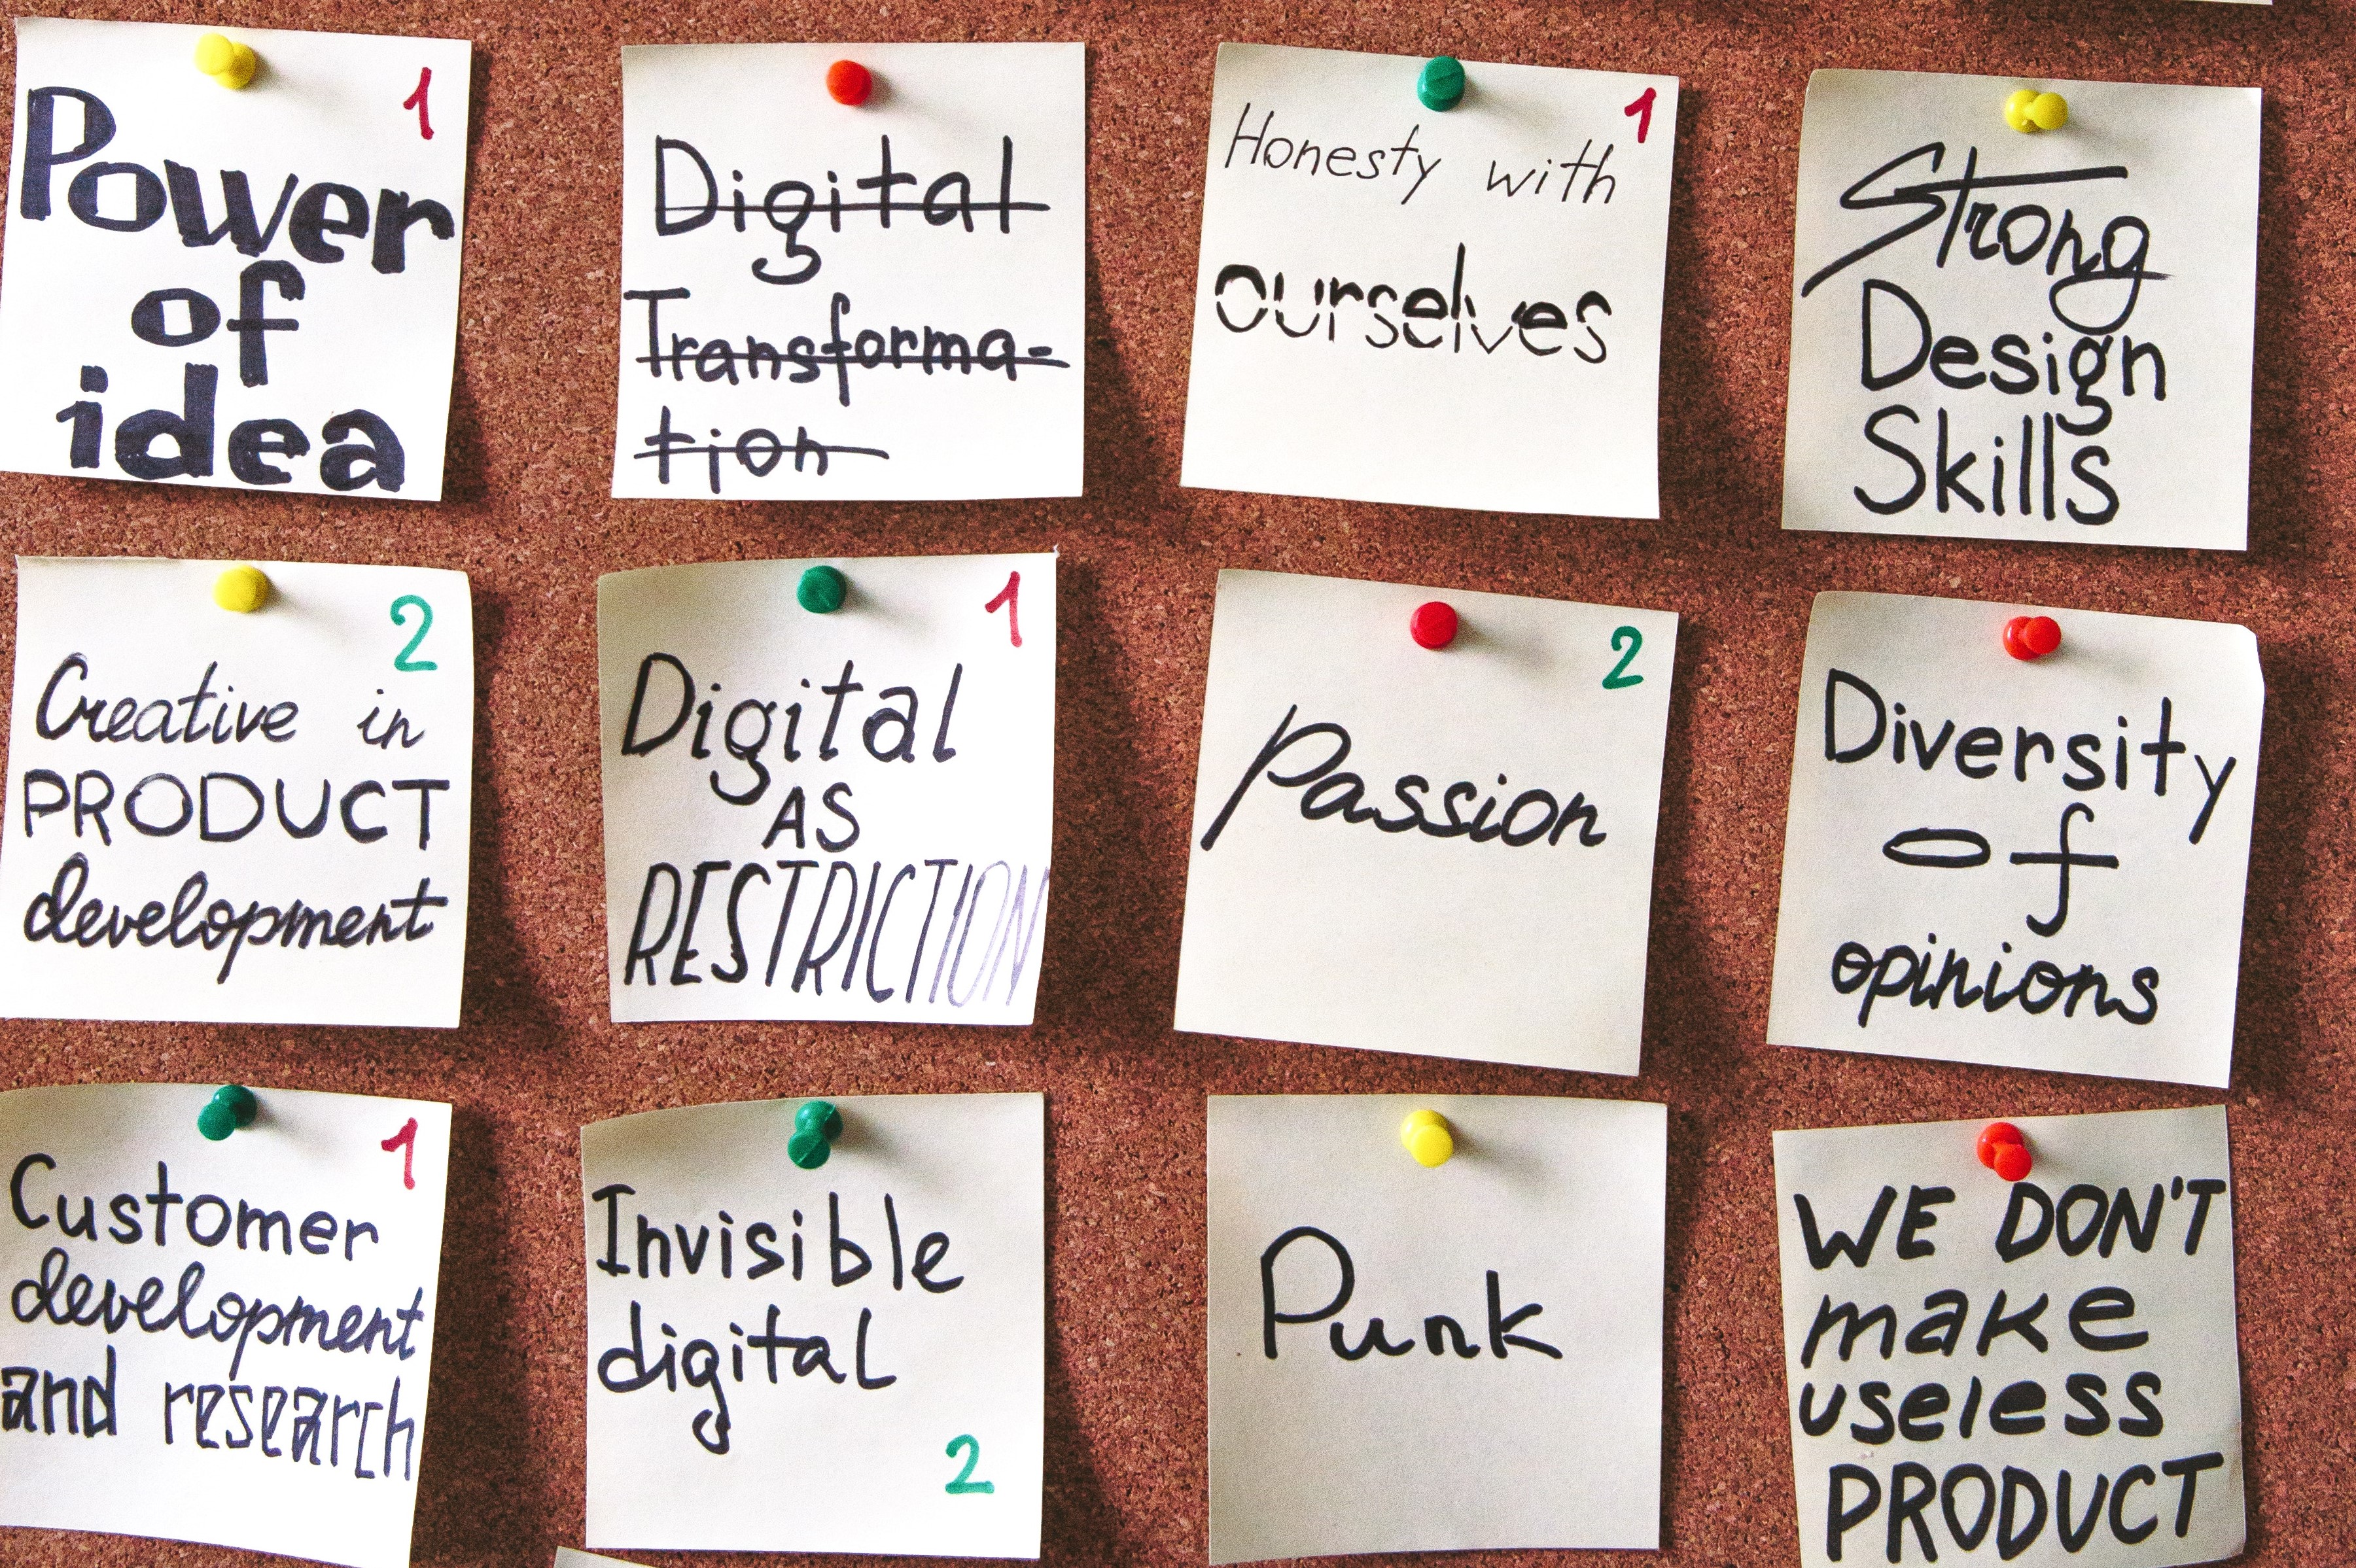 1
Power
of
idea
Digital
Transforma-
tion
1
Honesty with
ourselves
Strong
Design
Skills
2
Creative in
PRODUCT
development
1
Digital
AS
RESTRICTION
2
Passion
Diversity
of
opinions
1
Customer
development
and research
Invisible
digital
2
Punk
WE DON'T
make
useless
PRODUCT